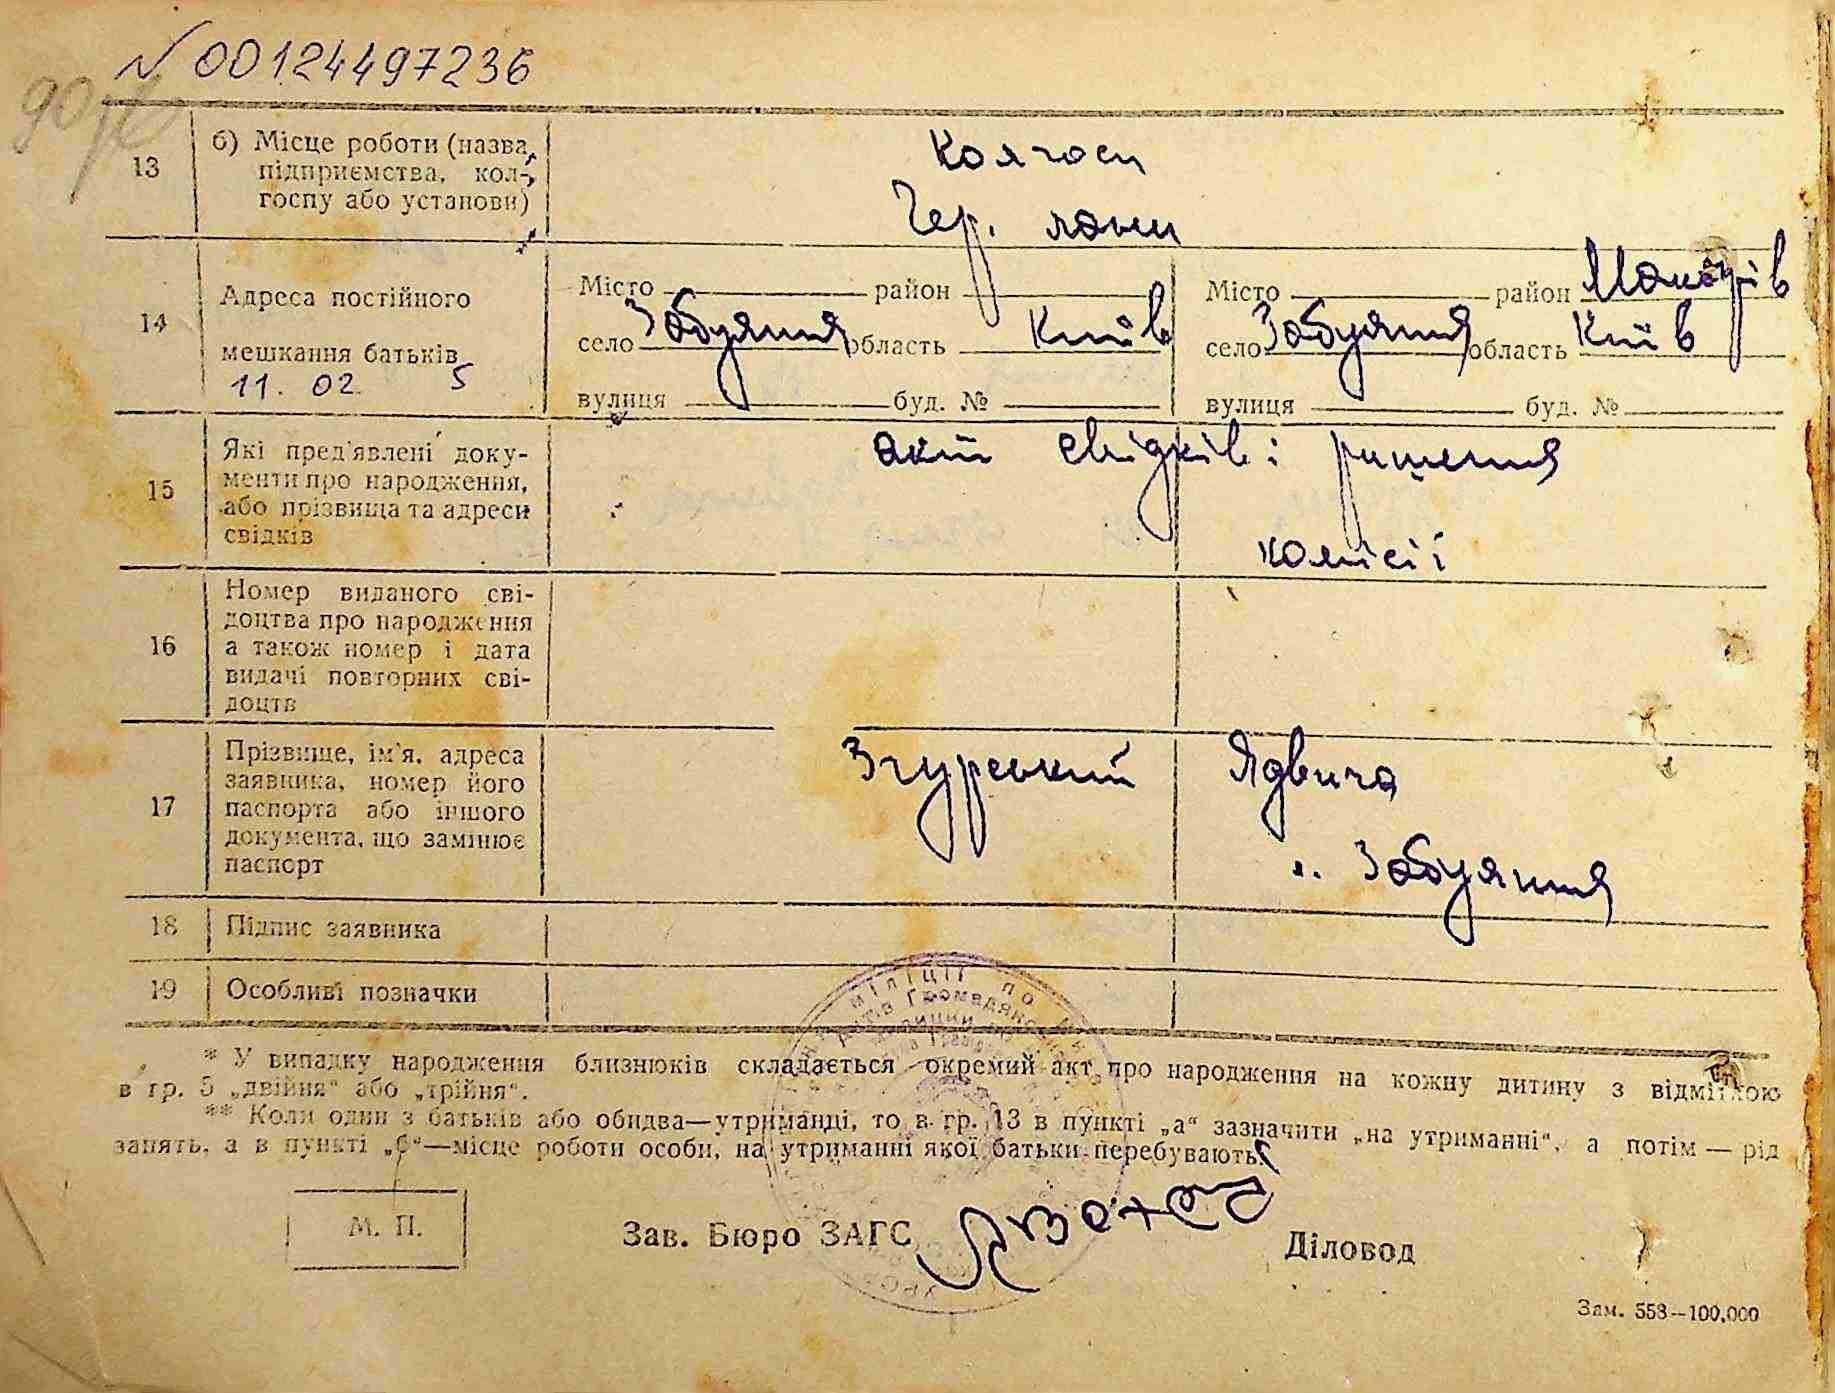 № 00124497236
13
б) Місце роботи (назва
підприємства, кол-
госпу або установи)
Колгосп
Чер. лани
14
Адреса постійного
мешкання батьків
11. 02 5
Місто район
село Забуяння область Київ
вулиця буд. №
Місто район Макарів
село Забуяння область Київ
вулиця буд. №
15
Які пред'явлені доку-
менти про народження,
або прізвища та адреси
свідків
акт свідків і рішення
комісії
16
Номер виданого сві-
доцтва про народження
а також номер і дата
видачі повторних сві-
доцтв
17
Прізвище, ім'я, адреса
заявника, номер його
паспорта або іншого
документа, що замінює
паспорт
Згурський Ядвига
с. Забуяння
18
Підпис заявника
19
Особливі позначки
* У випадку народження близнюків складається окремий акт про народження на кожну дитину з відміткою
в гр. 5 „двійня“ або „трійня“.
** Коли один з батьків або обидва—утриманці, то в гр. 13 в пункті „а“ зазначити „на утриманні“, а потім — рід
занять, а в пункті „б“—місце роботи особи, на утриманні якої батьки перебувають.
М. П.
Зав. Бюро ЗАГС
Діловод
Зам. 558—100.000